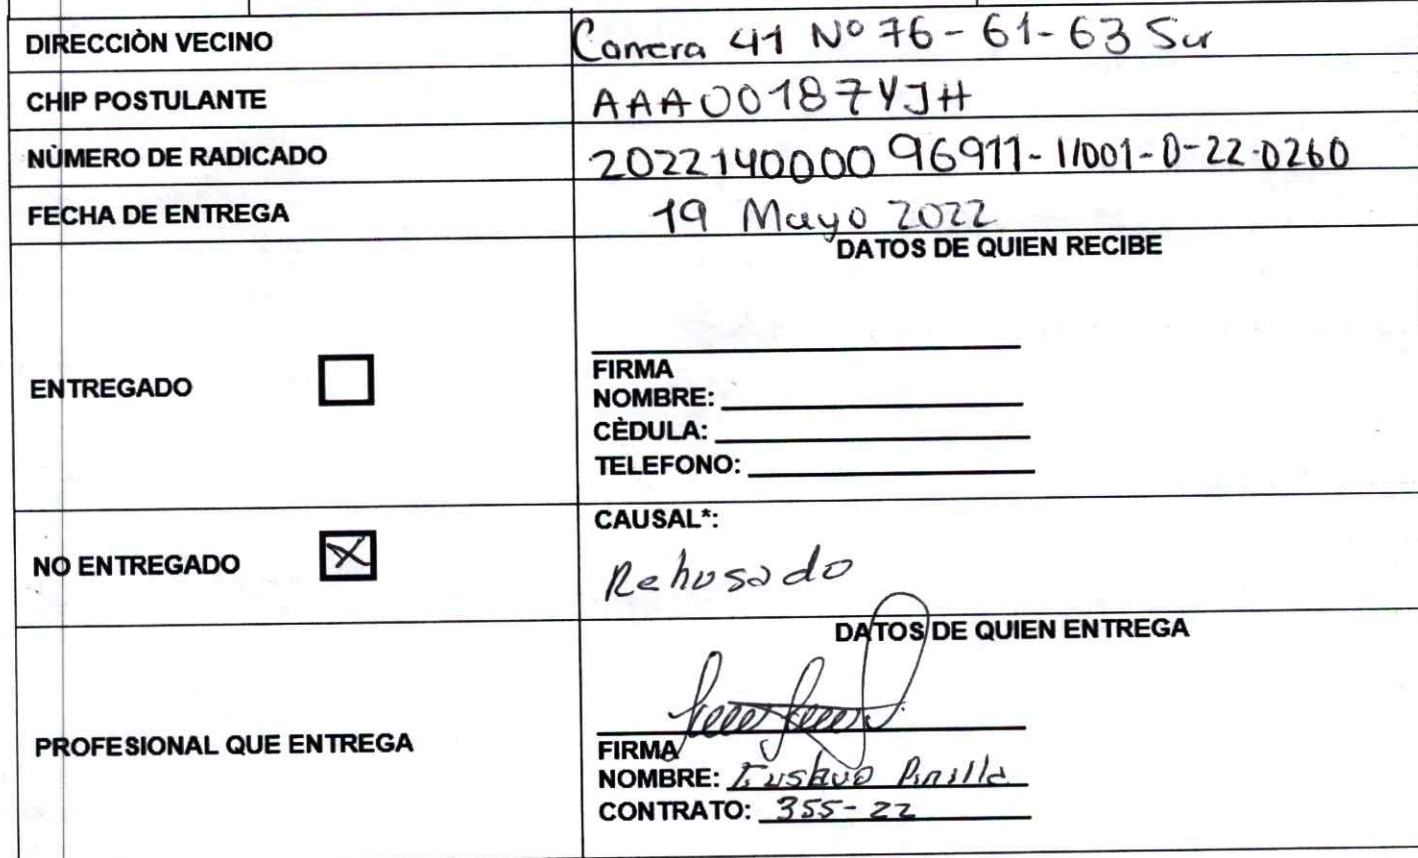 DIRECCIÒN VECINO Carrera 41 Nº 76-61-63 Sur
CHIP POSTULANTE AAA00187YJH
NÙMERO DE RADICADO 202214000096911-11001-0-22-0260
FECHA DE ENTREGA 19 Mayo 2022
DATOS DE QUIEN RECIBE
ENTREGADO
FIRMA
NOMBRE:
CÈDULA:
TELEFONO:
NO ENTREGADO
CAUSAL*:
Rehusado
DATOS DE QUIEN ENTREGA
PROFESIONAL QUE ENTREGA
FIRMA
NOMBRE: Gustavo Pinilla
CONTRATO: 355-22